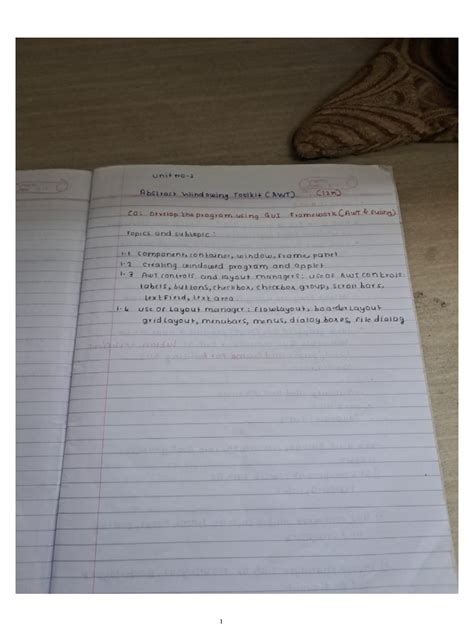 Unit no-1
Abstract Windowing Toolkit (AWT) (12M)
CO: Develop the program using GUI Framework (AWT & Swing)
Topics and subtopic:
1.1 component, container, window, frame, panel
1.2 creating windowed program and applet
1.3 AWT controls and layout managers: use of AWT controls:
labels, buttons, checkbox, checkbox group, scroll bars,
text field, text area
1.4 use of layout manager: flowlayout, boarder layout
gridlayout, menubars, menus, dialog boxes, file dialog
1